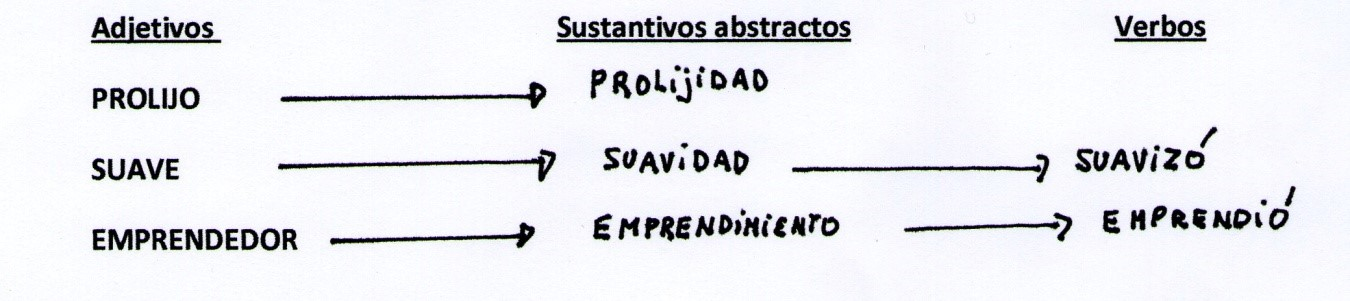 Adjetivos Sustantivos abstractos Verbos
PROLIJO PROLijiDAD
SUAVE SUAViDAD SUAViZÓ
EMPRENDEDOR EMPRENDiMiENTO EMPRENDiÓ